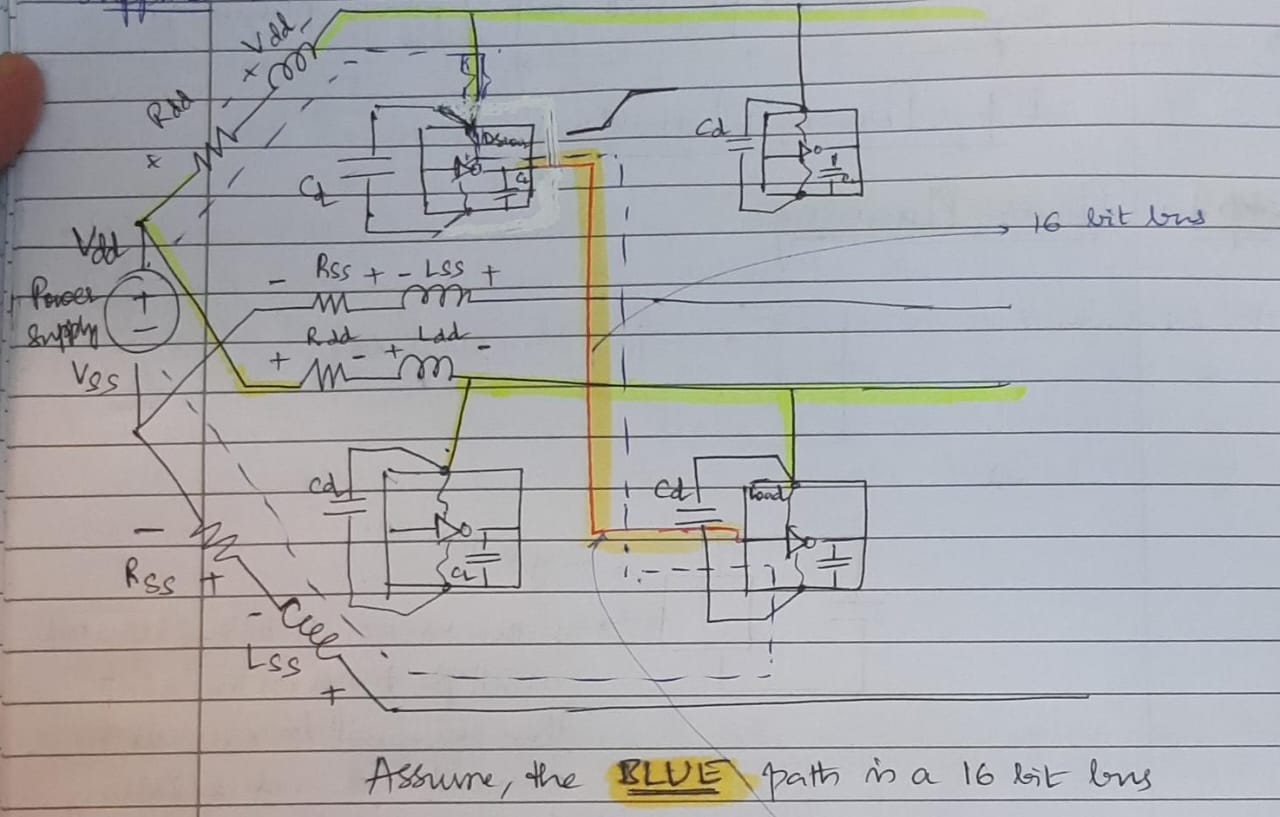 Vdd
Rdd
Cd
Cd
CL
16 bit bus
Vdd
Power
Supply
+
−
− Rss + − Lss +
Rdd Ldd
+ − + −
Vss
Cd
CL
Cd
Load
−
Rss +
− Lss
+
Assume, the BLUE path is a 16 bit bus